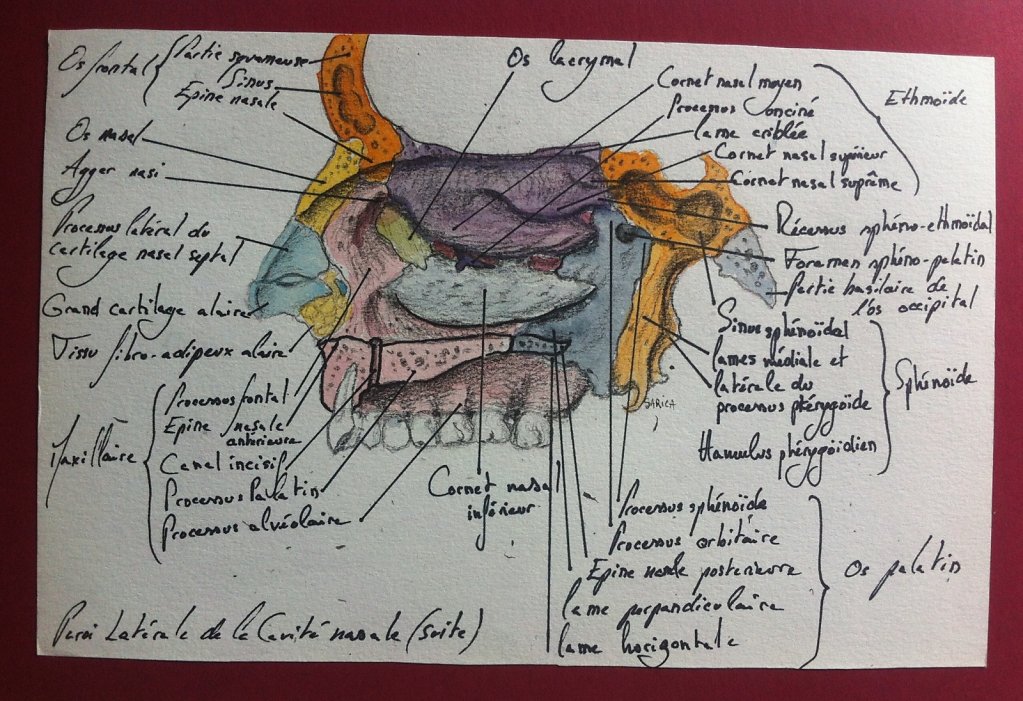 Os frontal
Partie squameuse
Sinus
Epine nasale
Os nasal
Agger nasi
Processus latéral du
cartilage nasal septal
Grand cartilage alaire
Tissu fibro-adipeux alaire
Maxillaire
Processus frontal
Epine nasale
antérieure
Canal incisif
Processus Palatin
Processus alvéolaire
Os lacrymal
Cornet nasal moyen
Processus onciné
lame criblée
Cornet nasal supérieur
Cornet nasal suprême
Ethmoïde
Récessus sphéno-ethmoïdal
Foramen sphéno-palatin
Partie basilaire de
l'os occipital
Sinus sphénoïdal
lames médiale et
latérale du
processus ptérygoïde
Hamulus ptérygoïdien
Sphénoïde
SARICA
Cornet nasal
inférieur
Processus sphénoïde
Processus orbitaire
Epine nasale posterieure
lame perpandiculaire
lame horizontale
Os palatin
Paroi Latérale de la Cavité nasale (suite)